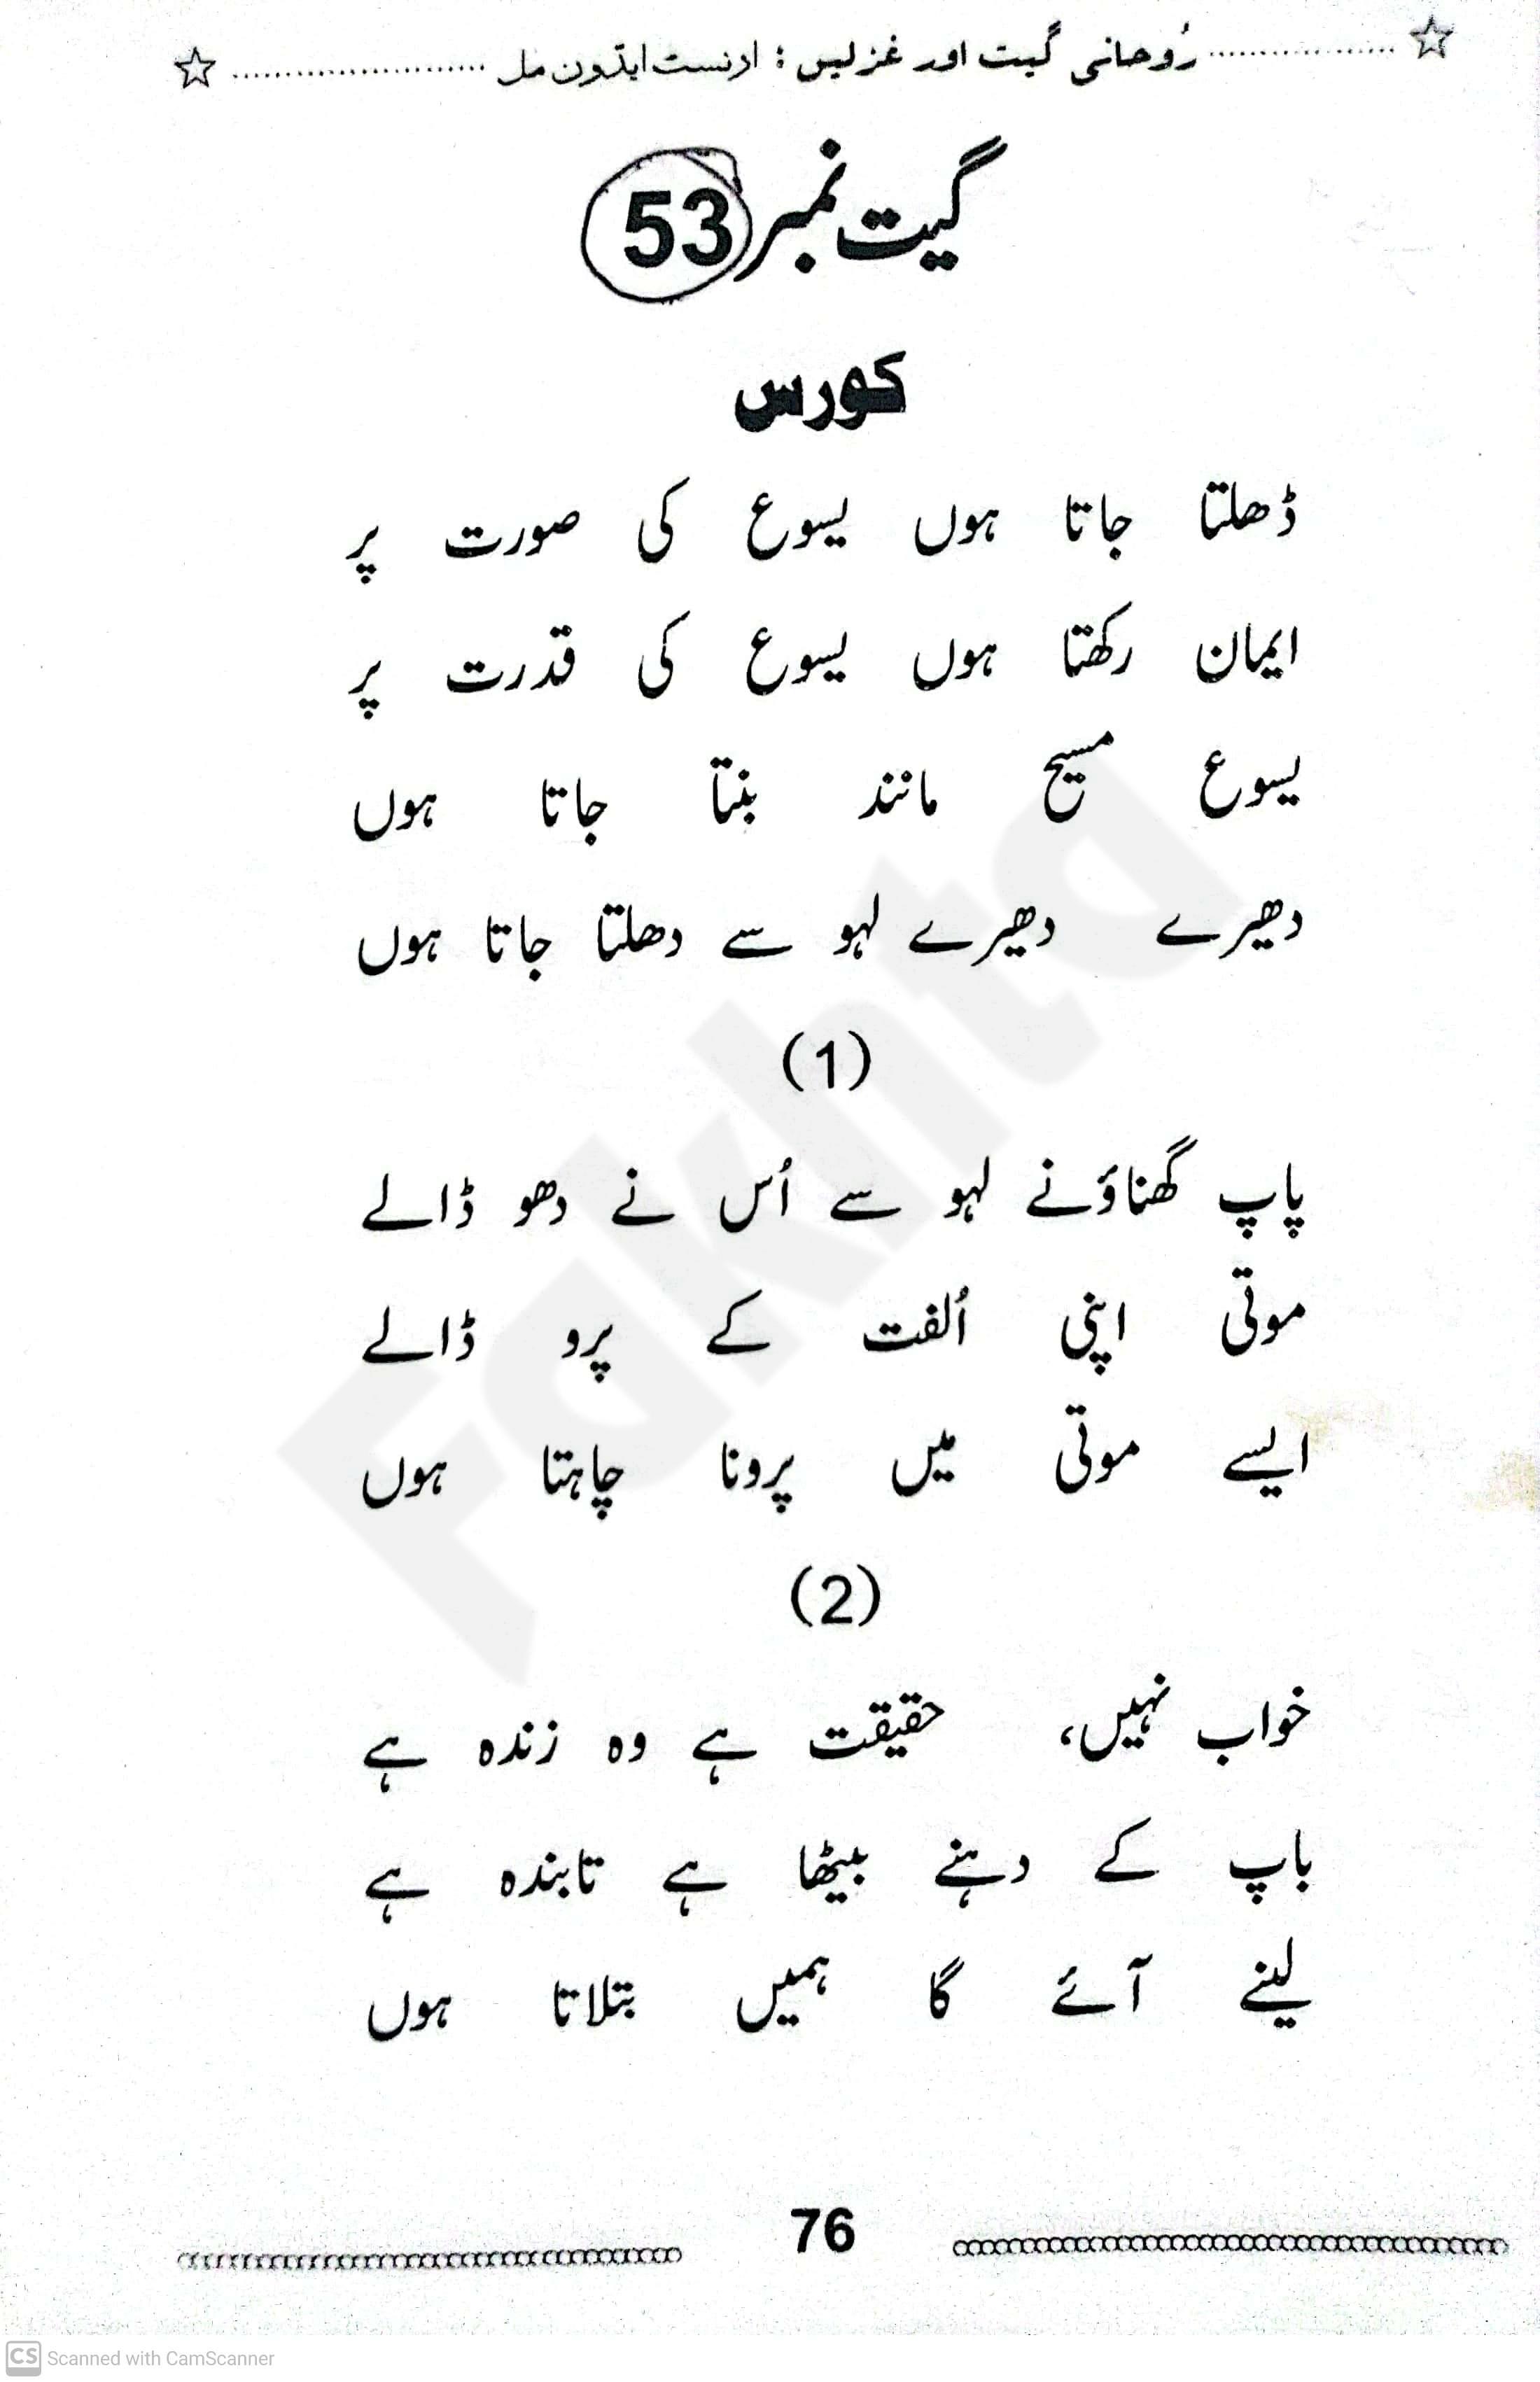 رُوحانی گیت اور غزلیں : ارنسٹ ایڈون مل
گیت نمبر 53
کورس
ڈھلتا جاتا ہوں یسوع کی صورت پر
ایمان رکھتا ہوں یسوع کی قدرت پر
یسوع مسیح مانند بنتا جاتا ہوں
دھیرے دھیرے لہو سے دھلتا جاتا ہوں
(1)
پاپ گھناؤنے لہو سے اُس نے دھو ڈالے
موتی اپنی اُلفت کے پرو ڈالے
ایسے موتی میں پرونا چاہتا ہوں
(2)
خواب نہیں، حقیقت ہے وہ زندہ ہے
باپ کے دہنے بیٹھا ہے تابندہ ہے
لینے آئے گا ہمیں بتلاتا ہوں
76
Fakhta
CS Scanned with CamScanner